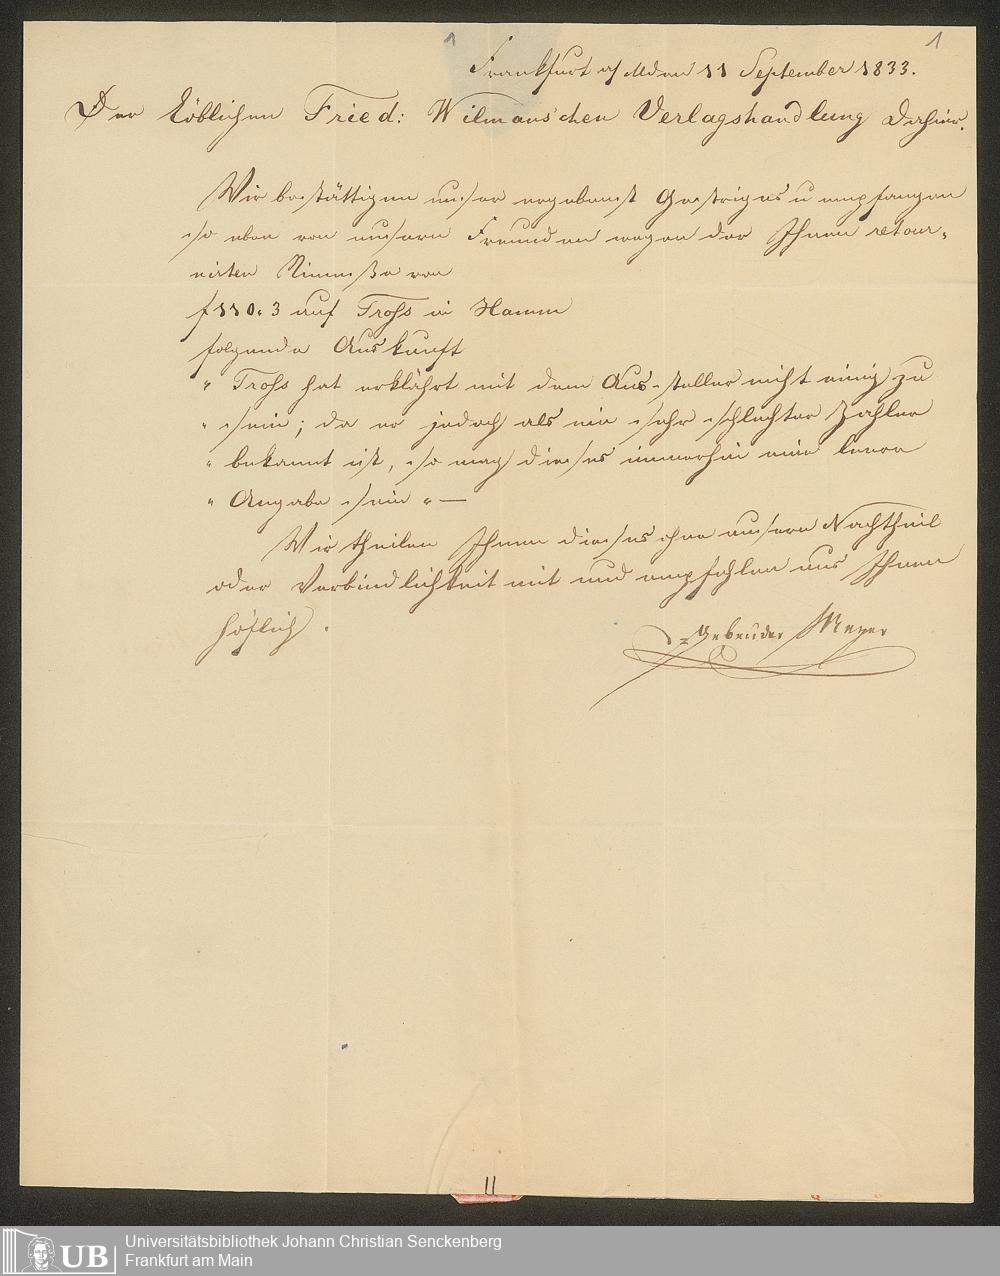 1 1
Frankfurt a/ M den 11 September 1833.
Der Löblichen Fried: Wilmans'chen Verlagshandlung Dahier.
Wir bestättigen unser ergebenst Gestriges u empfangen
so eben von unsern Freunden wegen der Ihnen retour-
nirten Rimesse von
f 110.3 auf Trohs in Hamm
folgende Auskunft
" Trohs hat erklährt mit dem Aussteller nicht einig zu
" sein; da er jedoch als ein sehr schlechter Zahler
" bekannt ist, so mag dieses immerhin eine leere
" Angabe sein " —
Wir theilen Ihnen dieses ohne unsern Nachtheil
oder Verbindlichkeit mit und empfehlen uns Ihnen
höflich.
Gebrüder Meyer
11
UB
Universitätsbibliothek Johann Christian Senckenberg
Frankfurt am Main